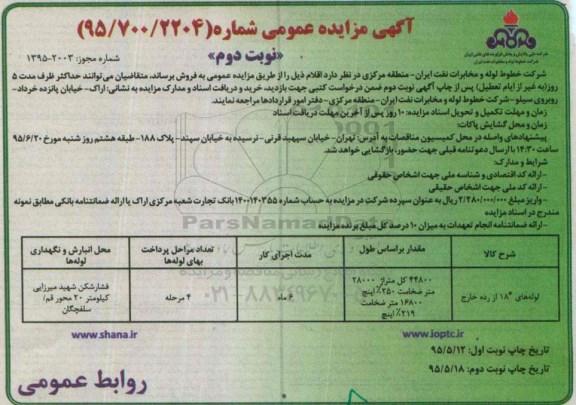 آگهی مزایده عمومی شماره(۹۵/۷۰۰/۲۲۰۴)
«نوبت دوم»
شماره مجوز: ۲۰۰۳-۱۳۹۵
شرکت خطوط لوله و مخابرات نفت ایران- منطقه مرکزی در نظر دارد اقلام ذیل را از طریق مزایده عمومی به فروش برساند، متقاضیان می‌توانند حداکثر ظرف مدت ۵
روز(به غیر از ایام تعطیل) پس از چاپ آگهی نوبت دوم ضمن درخواست کتبی جهت بازدید، خرید و دریافت اسناد و مدارک مزایده به نشانی: اراک- خیابان پانزده خرداد-
روبروی سیلو- شرکت خطوط لوله و مخابرات نفت ایران- منطقه مرکزی- دفتر امور قراردادها مراجعه نمایند.
زمان و مهلت تکمیل و تحویل اسناد مزایده: ۱۰ روز پس از آخرین مهلت دریافت اسناد
زمان و محل گشایش پاکات:
پیشنهادهای واصله در محل کمیسیون مناقصات به آدرس: تهران- خیابان سپهبد قرنی- نرسیده به خیابان سپند- پلاک ۱۸۸- طبقه هشتم روز شنبه مورخ ۹۵/۶/۲۰
ساعت ۱۴:۳۰ با ارسال دعوتنامه قبلی جهت حضور، بازگشایی خواهد شد.
شرایط و مدارک:
- ارائه کد اقتصادی و شناسه ملی جهت اشخاص حقوقی
- ارائه کد ملی جهت اشخاص حقیقی
- واریز مبلغ ۲/۲۸۰/۰۰۰/۰۰۰ ریال به عنوان سپرده شرکت در مزایده به حساب شماره ۱۴۰۰۱۴۰۳۵۵ بانک تجارت شعبه مرکزی اراک یا ارائه ضمانتنامه بانکی مطابق نمونه
مندرج در اسناد مزایده
- ارائه ضمانتنامه انجام تعهدات به میزان ۱۰ درصد کل مبلغ برنده مزایده
شرح کالا
مقدار براساس طول
مدت اجرای کار
تعداد مراحل پرداخت بهای لوله‌ها
محل انبارش و نگهداری لوله‌ها
لوله‌های "۱۸ از رده خارج
۴۴۸۰۰ کل متراژ ۲۸۰۰۰
متر ضخامت ۲۵۰٪ اینچ
۱۶۸۰۰ متر ضخامت
۲۱۹٪ اینچ
۶ ماه
۴ مرحله
فشارشکن شهید میرزایی
کیلومتر ۲۰ محور قم/
سلفچگان
www.shana.ir
www.ioptc.ir
تاریخ چاپ نوبت اول: ۹۵/۵/۱۲
تاریخ چاپ نوبت دوم: ۹۵/۵/۱۸
روابط عمومی
ParsNamadData
۰۲۱-۸۸۳۴۹۶۷۰